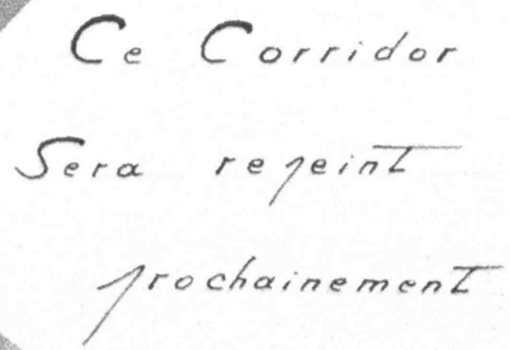 Ce Corridor
Sera repeint
prochainement